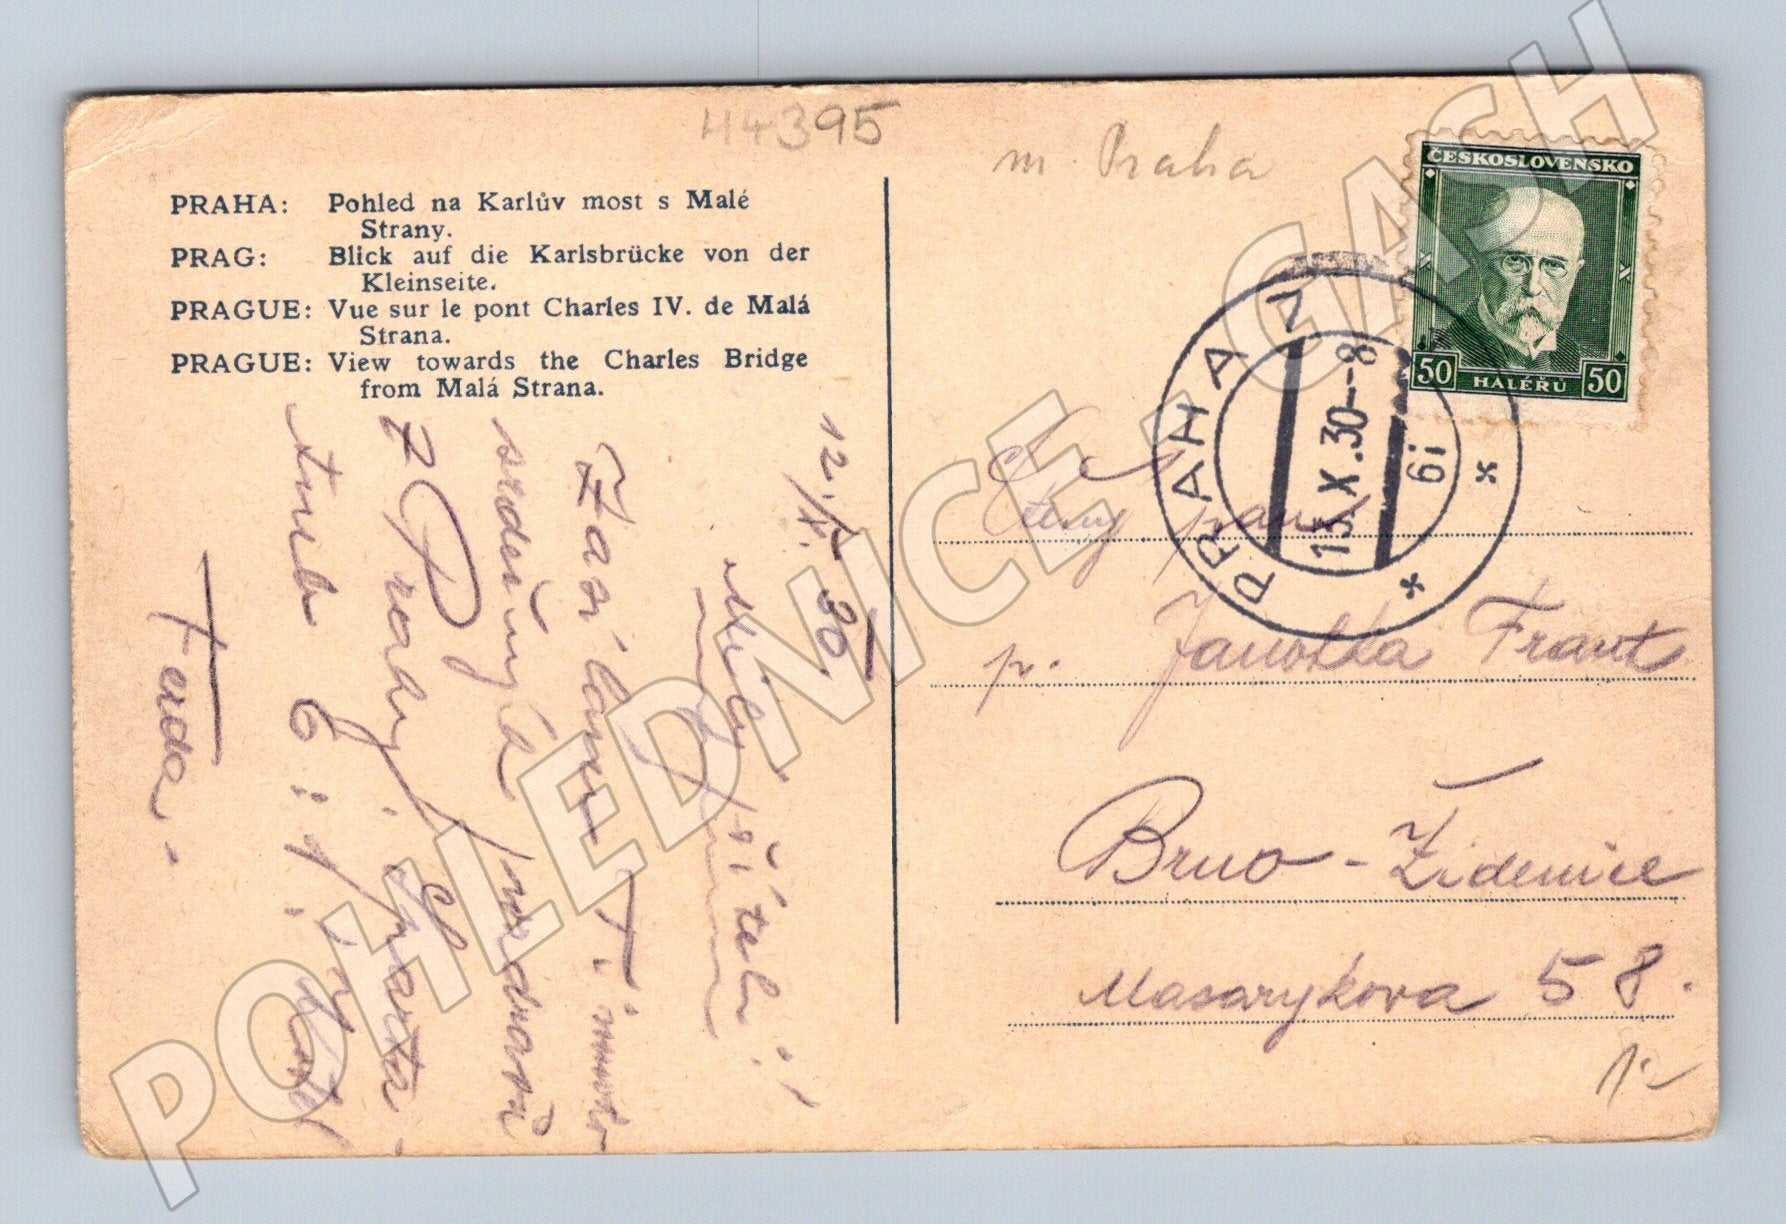 44395
m. Praha
PRAHA: Pohled na Karlův most s Malé
Strany.
PRAG: Blick auf die Karlsbrücke von der
Kleinseite.
PRAGUE: Vue sur le pont Charles IV. de Malá
Strana.
PRAGUE: View towards the Charles Bridge
from Malá Strana.
ČESKOSLOVENSKO
50 HALÉŘŮ 50
PRAHA
13.X.30--8
6i
12./X. 30
Milý příteli!
Zasílám Ti mnoho
srdečných pozdravů
z Prahy. Sparta -
Ferda.
Ctěný pan
p. Janotka Frant
Brno - Židenice
Masarykova 58.
POHLEDNICE, GASH